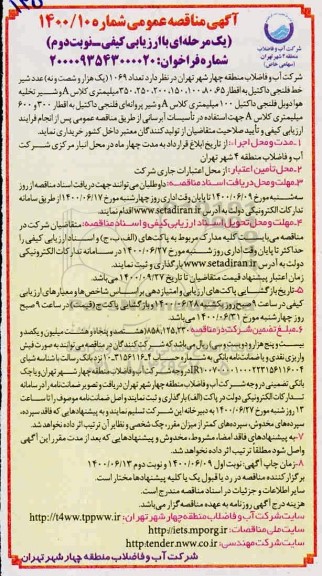 آگهی مناقصه عمومی شماره ۱۴۰۰/۱۰
(یک مرحله‌ای با ارزیابی کیفی ـ نوبت دوم)
شماره فراخوان: ۲۰۰۰۰۹۳۵۴۳۰۰۰۰۲۰
شرکت آب و فاضلاب
منطقه ۴ شهر تهران
(سهامی خاص)
شرکت آب و فاضلاب منطقه چهار شهر تهران در نظر دارد تعداد ۱۰۶۹ (یک هزار و شصت و نه) عدد شیر
خط فلنجی داکتیل به اقطار ۶۵، ۸۰، ۱۰۰، ۱۵۰، ۲۰۰، ۲۵۰، ۳۵۰ میلیمتری کلاس A و شیر تخلیه
هوا دوبل فلنجی داکتیل ۱۰۰ میلیمتری کلاس A و شیر پروانه‌ای فلنجی داکتیل به اقطار ۳۰۰ و ۶۰۰
میلیمتری کلاس A جهت استفاده در تأسیسات آبرسانی از طریق مناقصه عمومی پس از انجام فرایند
ارزیابی کیفی و تأیید صلاحیت متقاضیان از تولیدکنندگان معتبر داخل کشور خریداری نماید.
۱ـ مدت و محل اجرا: از تاریخ ابلاغ قرارداد به مدت چهار ماه در محل انبار مرکزی شرکت
آب و فاضلاب منطقه ۴ شهر تهران
۲ـ محل تأمین اعتبار: از محل اعتبارات جاری شرکت
۳ـ مهلت و محل دریافت اسناد مناقصه: داوطلبان می‌توانند جهت دریافت اسناد مناقصه از روز
سه‌شنبه مورخ ۱۴۰۰/۰۶/۰۹ تا پایان وقت اداری روز چهارشنبه مورخ ۱۴۰۰/۰۶/۱۷ از طریق سامانه
تدارکات الکترونیکی دولت به آدرس www.setadiran.ir اقدام نمایند.
۴ـ مهلت و محل تحویل اسناد ارزیابی کیفی و اسناد مناقصه: متقاضیان شرکت در
مناقصه می‌بایست کلیه مدارک مربوط به پاکت‌های (الف، ب، ج) و اسناد ارزیابی کیفی را
حداکثر تا پایان وقت اداری روز شنبه مورخ ۱۴۰۰/۰۶/۲۷ در سامانه تدارکات الکترونیکی
دولت به آدرس www.setadiran.ir بارگذاری و ثبت نمایند.
زمان اعتبار پیشنهاد قیمت متقاضیان تا تاریخ ۱۴۰۰/۰۹/۲۷ می‌باشد.
۵ـ تاریخ بازگشایی: پاکت‌های ارزیابی و امتیازدهی براساس شاخص‌ها و معیارهای ارزیابی
کیفی در ساعت ۹ صبح روز یکشنبه مورخ ۱۴۰۰/۰۶/۲۸ و بازگشایی پاکت ج (قیمت) در ساعت ۹ صبح
روز چهارشنبه مورخ ۱۴۰۰/۰۶/۳۱ می‌باشد.
۶ـ مبلغ تضمین شرکت در مناقصه:
واریز نقدی و یا ضمانتنامه بانکی به شماره حساب
بانکی تضمینی در وجه شرکت آب و فاضلاب منطقه چهار شهر تهران دریافت و تصویر ضمانتنامه را در سامانه
تدارکات الکترونیکی دولت در پاکت (الف) بارگذاری و ثبت نمایند و اصل ضمانتنامه موصوف را تا ساعت
۱۳ روز شنبه مورخ ۱۴۰۰/۰۶/۲۷ به دبیرخانه این شرکت تسلیم نمایند و به پیشنهادهایی که فاقد سپرده،
سپرده‌های مخدوش، سپرده‌های کمتر از میزان مقرر، چک شخصی و نظایر آن ترتیب اثر داده نخواهد شد.
۷ـ به پیشنهادهای فاقد امضاء، مشروط، مخدوش و پیشنهادهایی که بعد از مدت مقرر این آگهی
وصول شود مطلقاً ترتیب اثر داده نخواهد شد.
۸ـ زمان چاپ آگهی: نوبت اول ۱۴۰۰/۰۶/۰۹ و نوبت دوم ۱۴۰۰/۰۶/۱۳
برگزار کننده مناقصه در رد یا قبول یک یا کلیه پیشنهادها مختار است.
سایر اطلاعات و جزئیات در اسناد مناقصه مندرج است.
هزینه درج آگهی روزنامه به عهده مناقصه‌گزار می‌باشد.
سایت شرکت آب و فاضلاب منطقه چهار شهر تهران: http://t4ww.tppww.ir
سایت ملی مناقصات: http://iets.mporg.ir
سایت شرکت مهندسی: http:tender.nww.co.ir
شرکت آب و فاضلاب منطقه چهار شهر تهران